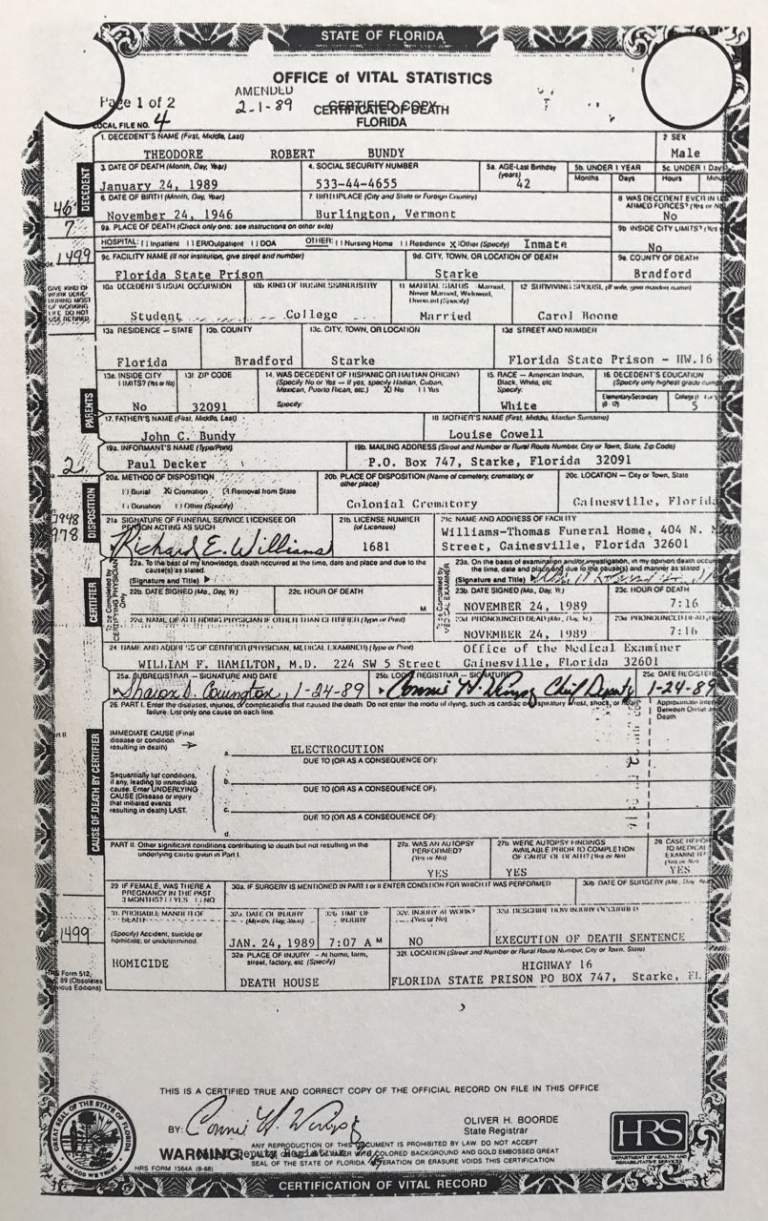 STATE OF FLORIDA
OFFICE of VITAL STATISTICS
AMENDED
2-1-89
Page 1 of 2
CERTIFIED COPY
CERTIFICATE OF DEATH
FLORIDA
LOCAL FILE NO. 4
1. DECEDENT'S NAME (First, Middle, Last)
THEODORE ROBERT BUNDY
2 SEX
Male
DECEDENT
3. DATE OF DEATH (Month, Day, Year)
January 24, 1989
4. SOCIAL SECURITY NUMBER
533-44-4655
5a. AGE-Last Birthday (years)
42
5b. UNDER 1 YEAR
Months Days
5c UNDER 1 Day
Hours
6. DATE OF BIRTH (Month, Day, Year)
November 24, 1946
7. BIRTHPLACE (City and State or Foreign Country)
Burlington, Vermont
8 WAS DECEDENT EVER IN
ARMED FORCES? (Yes or No
No
9a. PLACE OF DEATH (Check only one: see instructions on other side)
HOSPITAL: Inpatient ER/Outpatient DOA OTHER: Nursing Home Residence X Other (Specify) Inmate
9b INSIDE CITY LIMITS? (Yes
No
1499
9c. FACILITY NAME (If not institution, give street and number)
Florida State Prison
9d. CITY, TOWN, OR LOCATION OF DEATH
Starke
9e. COUNTY OF DEATH
Bradford
GIVE KIND OF
WORK DONE
DURING MOST
OF WORKING
LIFE. DO NOT
USE RETIRED
10a DECEDENT'S USUAL OCCUPATION
Student
10b KIND OF BUSINESS/INDUSTRY
College
11 MARITAL STATUS - Married,
Never Married, Widowed,
Divorced (Specify)
Married
12 SURVIVING SPOUSE (If wife, give maiden name)
Carol Boone
13a. RESIDENCE - STATE
Florida
13b. COUNTY
Bradford
13c. CITY, TOWN, OR LOCATION
Starke
13d STREET AND NUMBER
Florida State Prison - HW.16
13e. INSIDE CITY
LIMITS? (Yes or No)
No
13f. ZIP CODE
32091
14. WAS DECEDENT OF HISPANIC OR HAITIAN ORIGIN?
(Specify No or Yes - If yes, specify Haitian, Cuban,
Mexican, Puerto Rican, etc.) X No Yes
Specify:
15. RACE - American Indian,
Black, White, etc
Specify:
White
16 DECEDENT'S EDUCATION
(Specify only highest grade
Elementary/Secondary College
5
PARENTS
17. FATHER'S NAME (First, Middle, Last)
John C. Bundy
18 MOTHER'S NAME (First, Middle, Maiden Surname)
Louise Cowell
2
19a. INFORMANT'S NAME (Type/Print)
Paul Decker
19b. MAILING ADDRESS (Street and Number or Rural Route Number, City or Town, State, Zip Code)
P.O. Box 747, Starke, Florida 32091
DISPOSITION
20a. METHOD OF DISPOSITION
Burial X Cremation Removal from State
Donation Other (Specify)
20b. PLACE OF DISPOSITION (Name of cemetery, crematory, or
other place)
Colonial Crematory
20c. LOCATION - City or Town, State
Gainesville, Florida
21a SIGNATURE OF FUNERAL SERVICE LICENSEE OR
PERSON ACTING AS SUCH
Richard E. Williams
21b LICENSE NUMBER
(of Licensee)
1681
21c NAME AND ADDRESS OF FACILITY
Williams-Thomas Funeral Home, 404 N.
Street, Gainesville, Florida 32601
CERTIFIER
To be Completed by
CERTIFYING PHYSICIAN
Only
22a. To the best of my knowledge, death occurred at the time, date and place and due to the
cause(s) as stated.
(Signature and Title)
22b DATE SIGNED (Mo., Day, Yr.)
22c HOUR OF DEATH
M
22d. NAME OF ATTENDING PHYSICIAN IF OTHER THAN CERTIFIER (Type or Print)
To be Completed by
MEDICAL EXAMINER
23a. On the basis of examination and/or investigation, in my opinion death
the time, date and place and due to the cause(s) and manner as stated
(Signature and Title)
23b DATE SIGNED (Mo., Day, Yr.)
NOVEMBER 24, 1989
23c HOUR OF DEATH
7:16
23d PRONOUNCED DEAD (Mo., Day, Yr.)
NOVEMBER 24, 1989
23e PRONOUNCED DEAD
7:16
24 NAME AND ADDRESS OF CERTIFIER (PHYSICIAN, MEDICAL EXAMINER) (Type or Print)
Office of the Medical Examiner
WILLIAM F. HAMILTON, M.D. 224 SW 5 Street Gainesville, Florida 32601
25a. SUBREGISTRAR - SIGNATURE AND DATE
Sharon D. Covington, 1-24-89
25b LOCAL REGISTRAR - SIGNATURE
Chief Deputy
25c DATE REGISTERED
1-24-89
CAUSE OF DEATH BY CERTIFIER
26. PART I. Enter the diseases, injuries, or complications that caused the death. Do not enter the mode of dying, such as cardiac or respiratory arrest, shock, or heart
failure. List only one cause on each line.
Between Onset and
Death
IMMEDIATE CAUSE (Final
disease or condition
resulting in death)
a. ELECTROCUTION
DUE TO (OR AS A CONSEQUENCE OF):
Sequentially list conditions,
if any, leading to immediate
cause. Enter UNDERLYING
CAUSE (Disease or injury
that initiated events
resulting in death) LAST.
b.
DUE TO (OR AS A CONSEQUENCE OF):
c.
DUE TO (OR AS A CONSEQUENCE OF):
d.
PART II. Other significant conditions contributing to death but not resulting in the
underlying cause given in Part I.
27a. WAS AN AUTOPSY
PERFORMED?
(Yes or No)
YES
27b WERE AUTOPSY FINDINGS
AVAILABLE PRIOR TO COMPLETION
OF CAUSE OF DEATH? (Yes or No)
YES
28 CASE
TO MEDICAL
EXAMINER?
YES
29 IF FEMALE, WAS THERE A
PREGNANCY IN THE PAST
3 MONTHS? YES NO
30a. IF SURGERY IS MENTIONED IN PART I or II ENTER CONDITION FOR WHICH IT WAS PERFORMED
30b DATE OF SURGERY
1499
31. PROBABLE MANNER OF
DEATH
(Specify) Accident, suicide or
homicide; or undetermined.
HOMICIDE
32a DATE OF INJURY
JAN. 24, 1989
32b TIME OF
INJURY
7:07 A M
32c INJURY AT WORK?
(Yes or No)
NO
32d DESCRIBE HOW INJURY OCCURRED
EXECUTION OF DEATH SENTENCE
32e PLACE OF INJURY - At home, farm,
street, factory, etc (Specify)
DEATH HOUSE
32f. LOCATION (Street and Number or Rural Route Number, City or Town, State)
HIGHWAY 16
FLORIDA STATE PRISON PO BOX 747, Starke, FL
Form 512,
89 (Obsoletes
Editions)
THIS IS A CERTIFIED TRUE AND CORRECT COPY OF THE OFFICIAL RECORD ON FILE IN THIS OFFICE
BY:
OLIVER H. BOORDE
State Registrar
WARNING:
ANY REPRODUCTION OF THIS DOCUMENT IS PROHIBITED BY LAW DO NOT ACCEPT
COLORED BACKGROUND AND GOLD EMBOSSED GREAT
SEAL OF THE STATE OF FLORIDA ALTERATION OR ERASURE VOIDS THIS CERTIFICATION
HRS FORM 1564A (8-88)
GREAT SEAL OF THE STATE OF FLORIDA
IN GOD WE TRUST
HRS
DEPARTMENT OF HEALTH AND
REHABILITATIVE SERVICES
CERTIFICATION OF VITAL RECORD